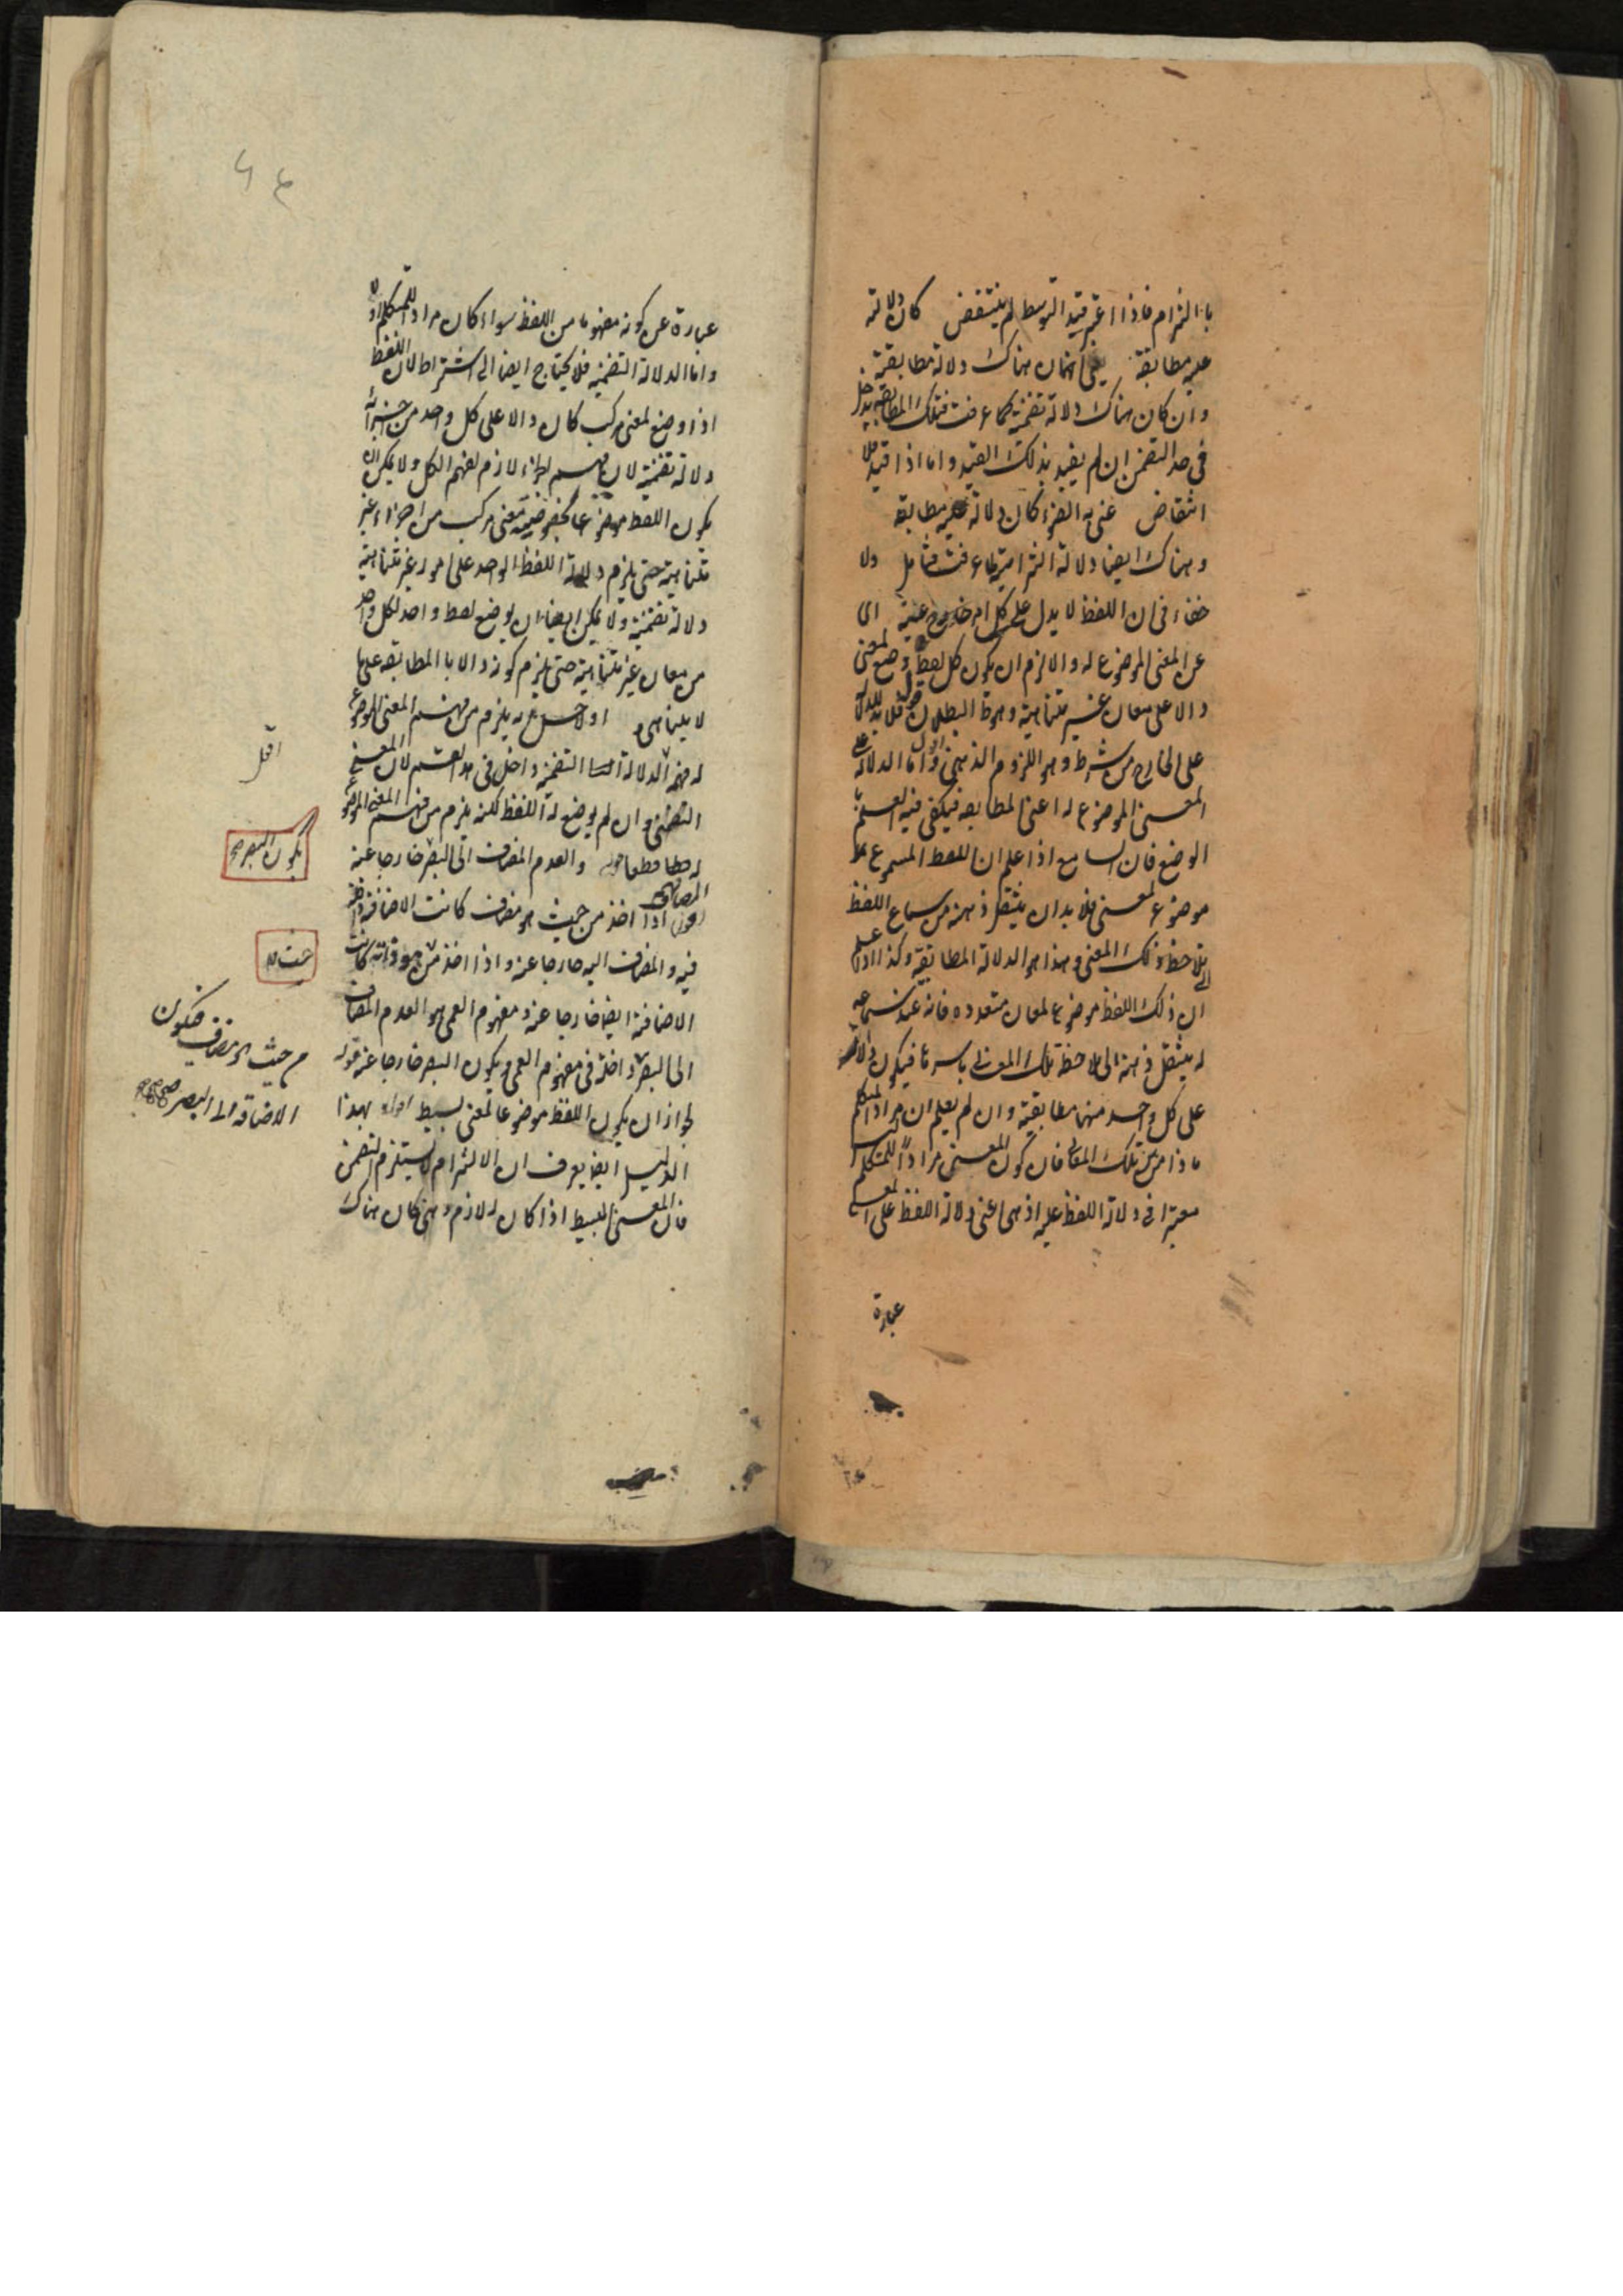 بالالتزام فاذا اعتبر قيد التوسط لم ينتقض كان دلالته
عليه مطابقة يعنى انه كان هناك دلالة مطابقية
وان كان هناك دلالة تضمنية كما عرفت فتلك المطابقة يدخل
فى حد التضمن ان لم يقيد بذلك القيد واما اذا قيد فلا
انتقاض عنى به الضوء كان دلالته عليه مطابقة
وهناك ايضا دلالة التزامية كما عرفت فتأمل ولا
خفاء فى ان اللفظ لا يدل على كل امر خارج عنه اى
عن المعنى الموضوع له والا لزم ان يكون كل لفظ وضع لمعنى
دالا على معان غير متناهية وهو ظ البطلان قوله فلا بد للدلالة
على الخارج من شرط وهو اللزوم الذهنى اقول واما الدلالة على
المعنى الموضوع له اعنى المطابقة فيكفى فيه العلم
الوضع فان السامع اذا علم ان اللفظ المسموع
موضوع لمعنى فلا بد ان ينتقل ذهنه من سماع اللفظ
الى ملاحظة ذلك المعنى وهذا هو الدلالة المطابقية وكذا اذا علم
ان ذلك اللفظ موضوع لمعان متعدده فانه عند سماعه
له ينتقل ذهنه الى ملاحظة تلك المعانى باسرها فيكون دالا
على كل واحد منها مطابقية وان لم يعلم ان مراد المتكلم
ماذا من تلك المعانى فان كون المعنى مرادا للمتكلم ليس
معتبرا فى دلالة اللفظ عليه اذ هى اعنى دلالة اللفظ على المعنى
عبارة
عبارة عن كونه مفهوما من اللفظ سواء كان مرادا للمتكلم او لا
واما الدلالة التضمنية فلا يحتاج ايضا الى اشتراط لان اللفظ
اذا وضع لمعنى مركب كان دالا على كل واحد من اجزائه
دلالة تضمنية لان فهم الجزء لازم لفهم الكل ولا يمكن ان
يكون اللفظ موضوعا بخصوصه لمعنى مركب من اجزاء غير
متناهية حتى يلزم دلالة اللفظ الواحد على امور غير متناهية
دلالة تضمنية ولا يمكن ايضا ان يوضع لفظ واحد لكل واحد
من معان غير متناهية حتى يلزم كونه دالا بالمطابقة على ما
لا يتناهى او لاجل انه يلزم من فهم المعنى الموضوع
له فهمه الدلالة التضمنية داخل فى هذا القسم لان المعنى
التضمنى وان لم يوضع له اللفظ لكنه يلزم من فهم المعنى الموضوع
له قطعا والعدم المضاف الى البصر خارجا عنه
اقول المضاف اذا اخذ من حيث هو مضاف كانت الاضافة داخلة
فيه والمضاف اليه خارجا عنه واذا اخذ من حيث ذاته كانت
الاضافة ايضا خارجا عنه ومفهوم العمى هو العدم المضاف
الى البصر داخلة فى مفهوم العمى ويكون البصر خارجا عنه قوله
لجواز ان يكون اللفظ موضوعا لمعنى بسيط اقول بهذا
الدليل ايضا يعرف ان الالتزام لا يستلزم التضمن
فان المعنى البسيط اذا كان له لازم ذهنى كان هناك
اقول
يكون البصر
من حيث هو مضاف فتكون
الاضافة الى البصر صح